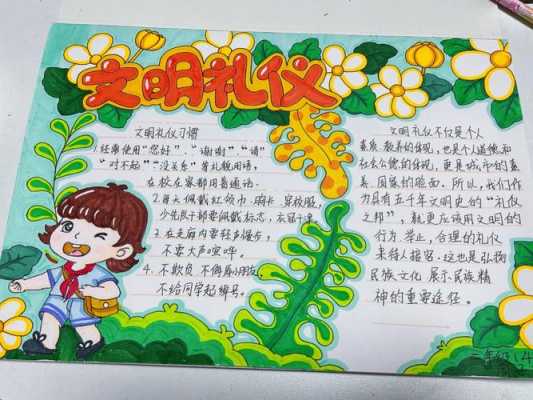 文明礼仪
文明礼仪习惯
经常使用“您好”、“谢谢”、“请”
“对不起”、“没关系”等礼貌用语,
在校在家都用普通话.
2.每天佩戴红领巾.胸卡.穿校服,
少先队干部要佩戴标志,衣冠干净
3.在走廊内要轻声慢步,
不要大声喧哗.
4.不欺负.不侮辱小朋友,
不给同学起绰号。
文明礼仪不仅是个人
素质.教养的体现,也是个人道德和
社会公德的体现,更是城市的素
养.国家的脸面.所以,我们作
为具有五千年文明史的“礼仪
之邦”,就更应该用文明的
行为.举止,合理的礼仪
来待人接客.这也是弘扬
民族文化.展示民族精
神的重要途径.